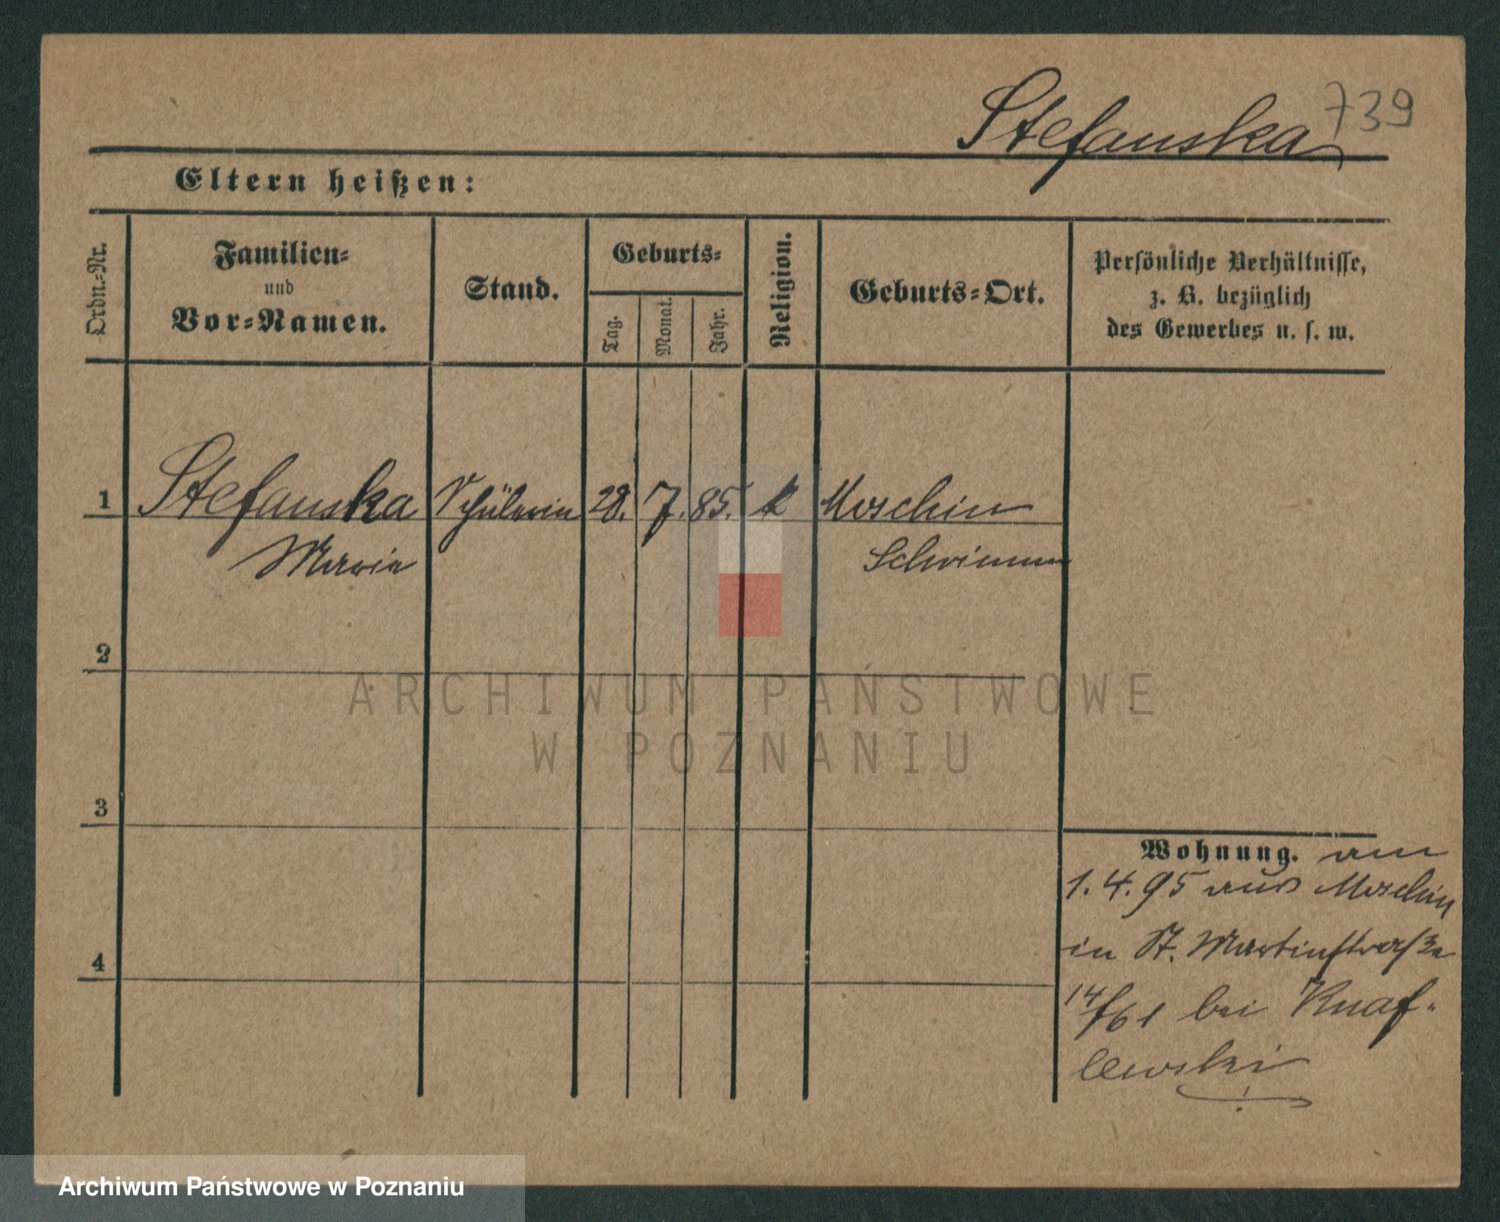 Stefanska 739
Eltern heißen:
Ordn.-Nr.
Familien-
und
Vor-Namen.
Stand.
Geburts-
Tag.
Monat.
Jahr.
Religion.
Geburts-Ort.
Persönliche Verhältnisse,
z. B. bezüglich
des Gewerbes u. s. w.
1 Stefanska Schülerin 28. 7. 85. k Moschin
Marie Schrimm
2
ARCHIWUM PAŃSTWOWE
W POZNANIU
3
Wohnung. am
1. 4. 95 aus Moschin
in St. Martinstraße
4
bei Knaf-
lewski
Archiwum Państwowe w Poznaniu